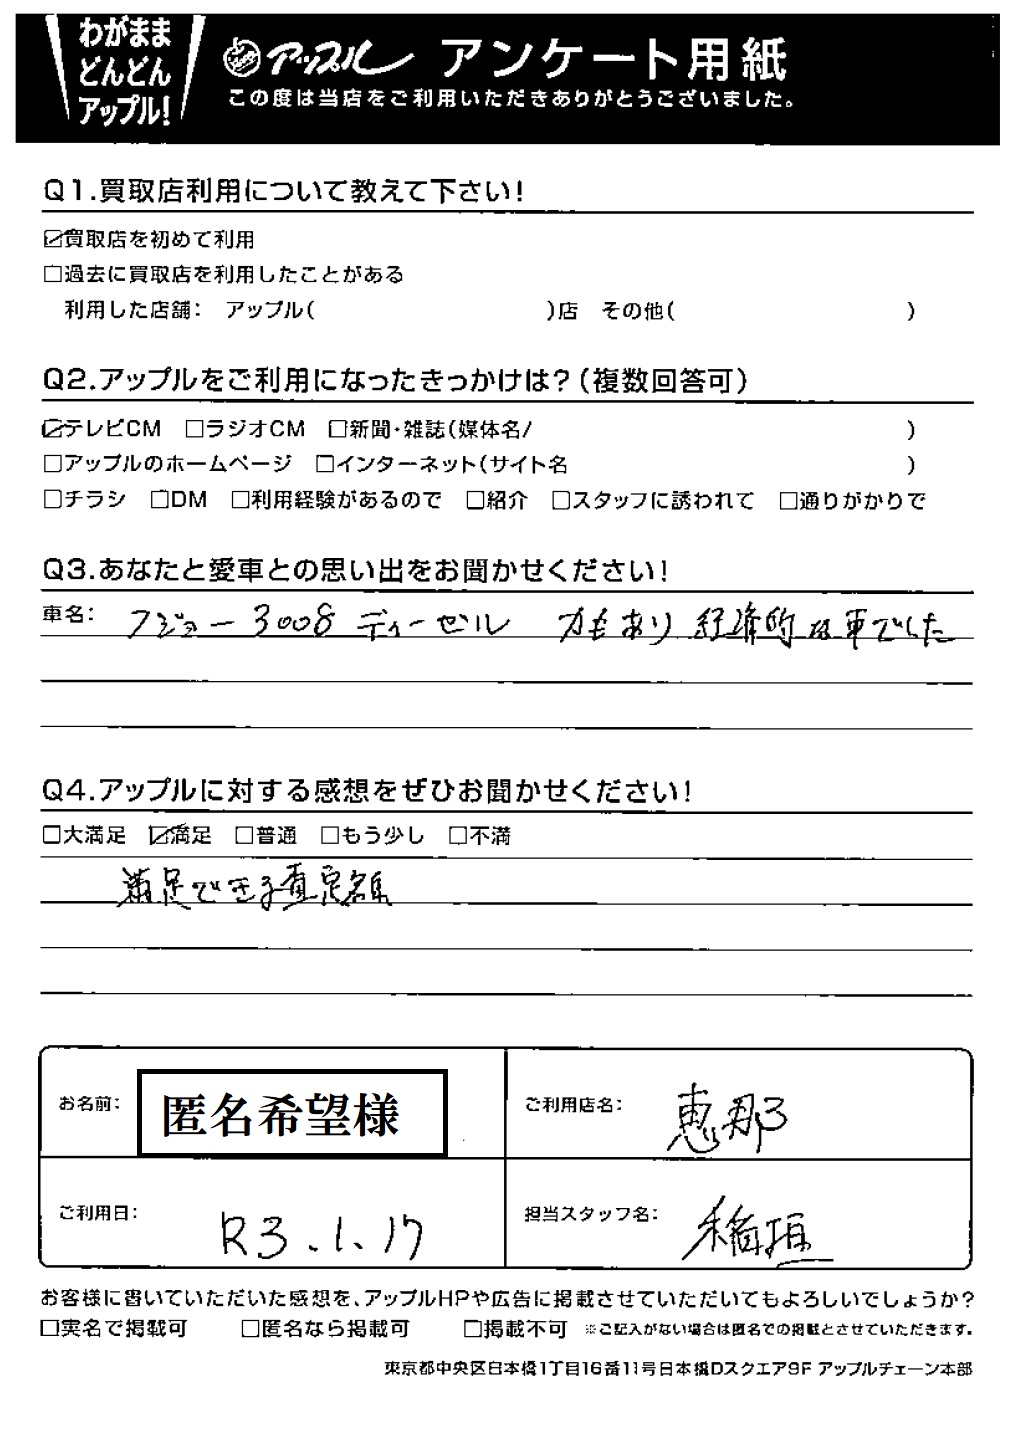 わがまま
どんどん
アップル!
アップル アンケート用紙
この度は当店をご利用いただきありがとうございました。
Q1.買取店利用について教えて下さい!
☑買取店を初めて利用
□過去に買取店を利用したことがある
利用した店舗: アップル( )店 その他( )
Q2.アップルをご利用になったきっかけは?(複数回答可)
☑テレビCM □ラジオCM □新聞・雑誌(媒体名/ )
□アップルのホームページ □インターネット(サイト名 )
□チラシ □DM □利用経験があるので □紹介 □スタッフに誘われて □通りがかりで
Q3.あなたと愛車との思い出をお聞かせください!
車名: プジョー3008 ディーゼル 力もあり経済的な車でした
Q4.アップルに対する感想をぜひお聞かせください!
□大満足 ☑満足 □普通 □もう少し □不満
満足できる査定金額
お名前: 匿名希望様
ご利用店名: 恵那
ご利用日: R3.1.17
担当スタッフ名: 稲垣
お客様に書いていただいた感想を、アップルHPや広告に掲載させていただいてもよろしいでしょうか?
□実名で掲載可 □匿名なら掲載可 □掲載不可 ※ご記入がない場合は匿名での掲載とさせていただきます。
東京都中央区日本橋1丁目16番11号日本橋Dスクエア9F アップルチェーン本部